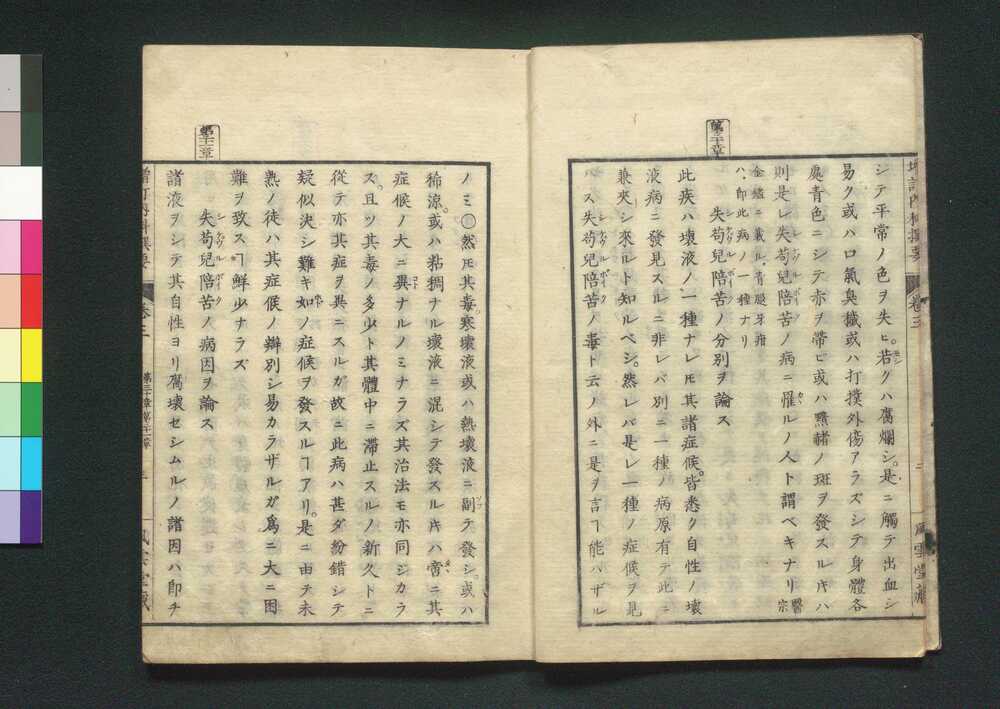 第二十章
シテ平常ノ色ヲ失ヒ。若クハ腐爛シ。是ニ觸テ出血シ
易ク或ハ口氣臭穢或ハ打撲外傷アラズシテ身體各
處青色ニシテ赤ヲ帶ヒ或ハ黑赭ノ斑ヲ發スルヿハ
則是レ失苟兒陪苦ノ病ニ罹ルノ人ト謂ベキナリ 醫宗
金鑑ニ載ル。青腿牙疳
ハ。即此病ノ一種ナリ
失苟兒陪苦ノ分別ヲ論ス
此疾ハ壞液ノ一種ナレㄇ其諸症候。皆悉ク自性ノ壞
液病ニ發見スルニ非レバ別ニ一種ノ病原有テ此ニ
兼夾シ來ルト知ルベシ。然レバ是レ一種ノ症候ヲ見
ハス失苟兒陪苦ノ毒ト云ノ外ニ是ヲ言ヿ能ハザル
卷三
風雲堂藏
第二十一章
ノミ〇然ㄇ其毒寒壞液或ハ熱壞液ニ副テ發シ。或ハ
稀涼。或ハ粘稠ナル壞液ニ混シテ發スルキハ啻ニ其
症候ノ大ニ異ナルノミナラズ其治法モ亦同ジカラ
ス。且ツ其毒ノ多少ト其體中ニ滯止スルノ新久トニ
從テ亦其症ヲ異ニスルガ故ニ此病ハ甚ダ紛錯シテ
疑似決シ難キ如ノ症候ヲ發スルヿアリ。是ニ由テ未
熟ノ徒ハ其症候ノ辯別シ易カラザルガ爲ニ大ニ困
難ヲ致スヿ鮮少ナラズ
失苟兒陪苦ノ病因ヲ論ス
諸液ヲシテ其自性ヨリ腐壞セシムルノ諸因ハ即チ
卷三
第二十章第二十一章